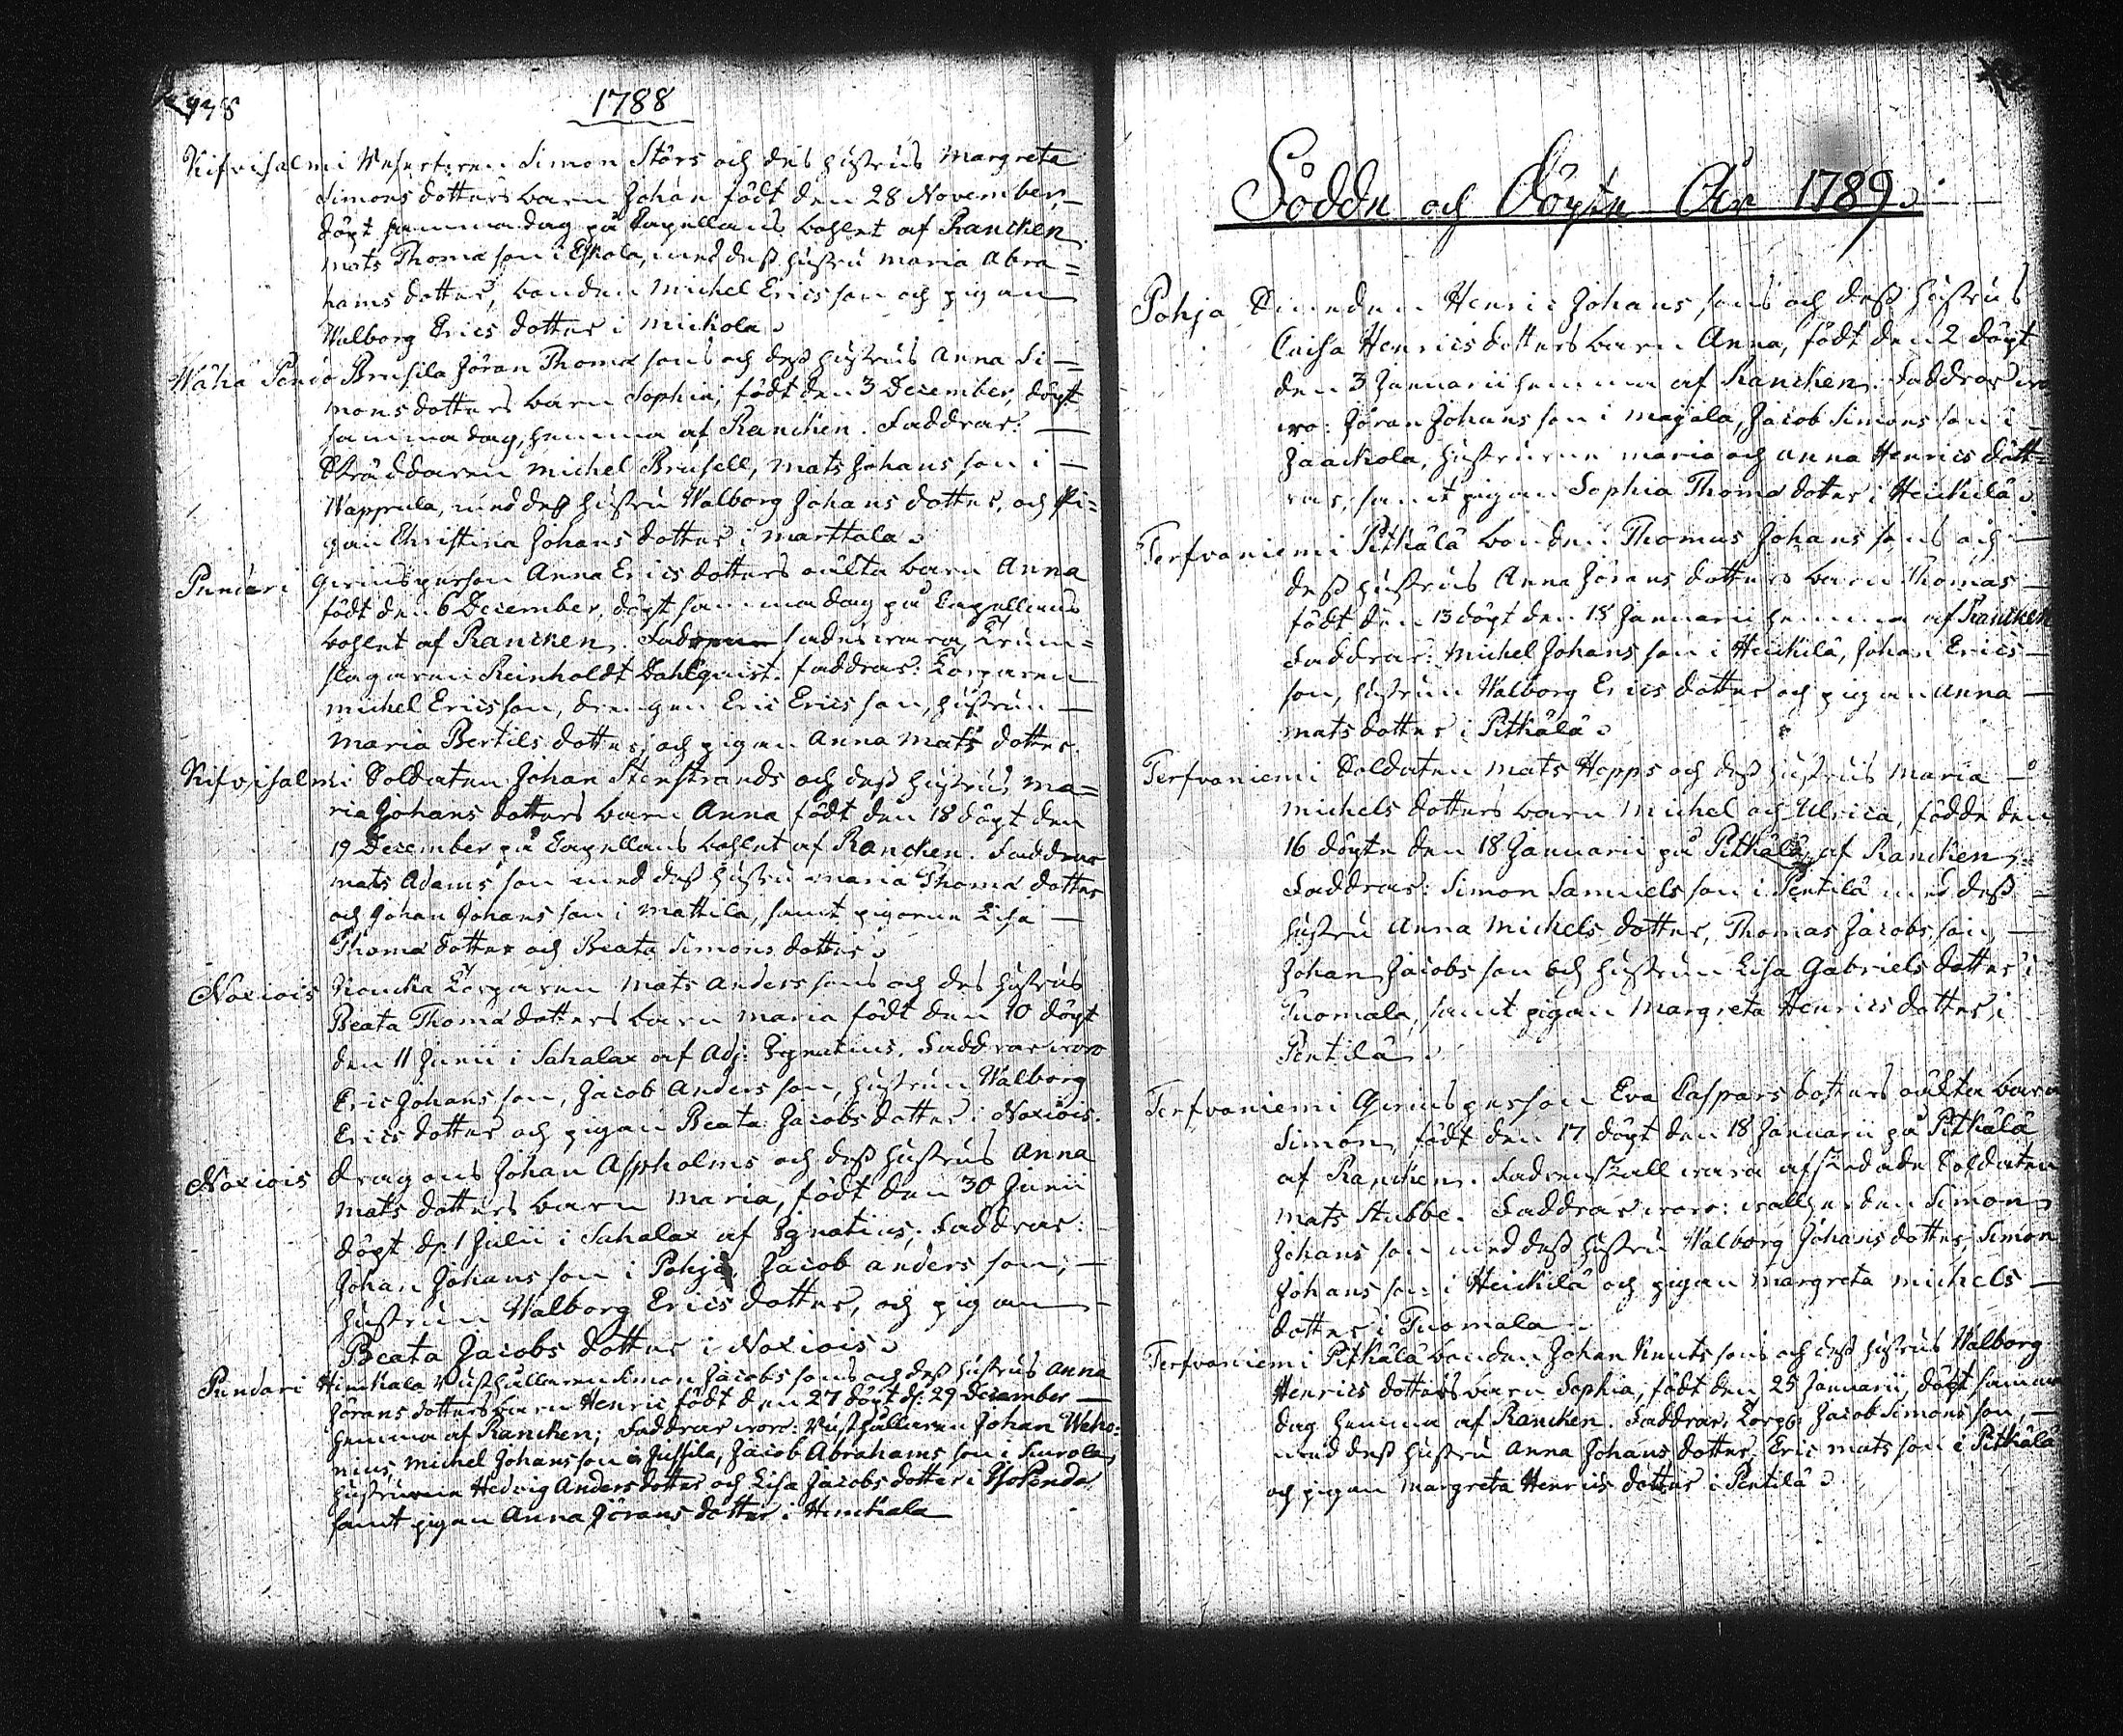 1788
Kifvisalmi Simon Störs och des hustrus Margreta
Simons dotters barn Johan födt den 28 November,
döpt samma dag på Capellans bohlet af Rancken.
Mats Thomæ son i Eskola, med dess hustru Maria Abra=
hams dotter, bonden Michel Ericsson och pigan
Walborg Erics dotter i Mickola.
Wähä Pendo Brusila Jöran Thomæ sons och dess hustrus Anna Si=
mons dotters barn Sophia, födt den 3 December, döpt
samma dag, hemma af Rancken. Faddrar:
Skräddaren Michel Brusell, Mats Johans son i
Wappula, med dess hustru Walborg Johans dotter, och Pi=
gan Christina Johans dotter i Marttala.
Pundari Qvinsperson Anna Erics dotters oächta barn Anna
födt den 6 December, döpt samma dag på Capellans
bohlet af Rancken. sades wara Trum=
slagaren Reinholdt Dahlqvist. Faddrar: Torparen
Michel Ericsson, drengen Eric Ericsson, hustrun
Maria Bertils dotter, och pigan Anna Mats dotter.
Kifvisalmi Soldaten Johan Stenstrands och dess hustrus Ma=
ria Johans dotters barn Anna födt den 18 döpt den
19 December på Capellans bohlet af Rancken. Faddrar
Mats Adams son med dess hustru Maria Thomæ dotter
och Johan Johans son i Mattila, samt pigorne Lisa
Thomæ dotter och Beata Simons dotter.
Noxiois Torparen Mats Anders sons och des hustrus
Beata Thomæ dotters barn Maria födt den 10 döpt
den 11 Junii i Sahalax af Adj: Ignatius. Faddrar woro
Eric Johans son, Jacob Anders son, hustrun Walborg
Erics dotter och pigan Beata Jacobs dotter i Noxiois.
Noxiois Dragons Johan Aspholms och dess hustrus Anna
Mats dotters barn Maria, födt den 30 Junii
döpt d: 1 Julii i Sahalax af Ignatius, Faddrar:
Johan Johans son i Pohja, Jacob Anders son,
hustrun Walborg Erics dotter, och pigan
Beata Jacobs dotter i Noxiois.
Pundari Himckala Rusthållaren Simon Jacobs sons och dess hustrus Anna
Jörans dotters barn Henric födt den 27 döpt d: 29 December
hemma af Rancken; Faddrar woro: Rusthållaren Johan Wehe=
nius, Michel Johans son i Jussila, Jacob Abrahams son i
hustrurna Hedvig Anders dotter och Lisa Jacobs dotter i
samt pigan Anna Jörans dotter i Himckala
Födde och Döpte År 1789.
Pohja Smeden Henric Johans sons och dess hustrus
Caisa Henrics dotters barn Anna, födt den 2 döpt
den 3 Januarii hemma af Rancken. Faddrar
woro: Jöran Johans son i Majala, Jacob Simons son i
Jaackola, hustrurne Maria och Anna Henrics dött=
rar, samt pigan Sophia Thomæ dotter i Heickilä.
Terfvaniemi Pitkälä bonden Thomas Johans sons och
dess hustrus Anna Jörans dotters barn Thomas
födt den 13 döpt den 15 Januarii hemma af Rancken
Faddrar: Michel Johans son i Heickilä, Johan Erics
son, hustrun Walborg Erics dotter och pigan Anna
Mats dotter i Pitkälä.
Terfvaniemi Soldaten Mats Hopps och dess hustrus Maria
Michels dotters barn Michel och Ulrica, födde den
16 döpte den 18 Januarii på Pitkälä af Rancken
Faddrar: Simon Samuels son i Pentilä med dess
hustru Anna Michels dotter, Thomas Jacobs son,
Johan Jacobs son och hustrun Lisa Gabriels dotter i
Tuomala, samt pigan Margreta Henrics dotter i
Pentilä.
Terfvaniemi Qvinsperson Eva Caspars dotters oächta barn
Simon, födt den 17 döpt den 18 Januarii på Pitkälä
af Rancken. Fadren skall wara afskedade Soldaten
Mats Stubbe. Faddrar woro: wallherden Simon
Johans son med dess hustru Walborg Johans dotter, Simon
Johans son i Heickilä och pigan Margreta Michels
dotter i Tuomala.
Terfvaniemi Pitkälä bonden Johan Knuts sons och dess hustrus Walborg
Henrics dotters barn Sophia, födt den 25 Januarii, döpt samma
dag hemma af Rancken. Faddrar, Torp: Jacob Simons son,
med dess hustru Anna Johans dotter, Eric Mats son i Pitkälä
och pigan Margreta Henrics dotter i Pentilä.